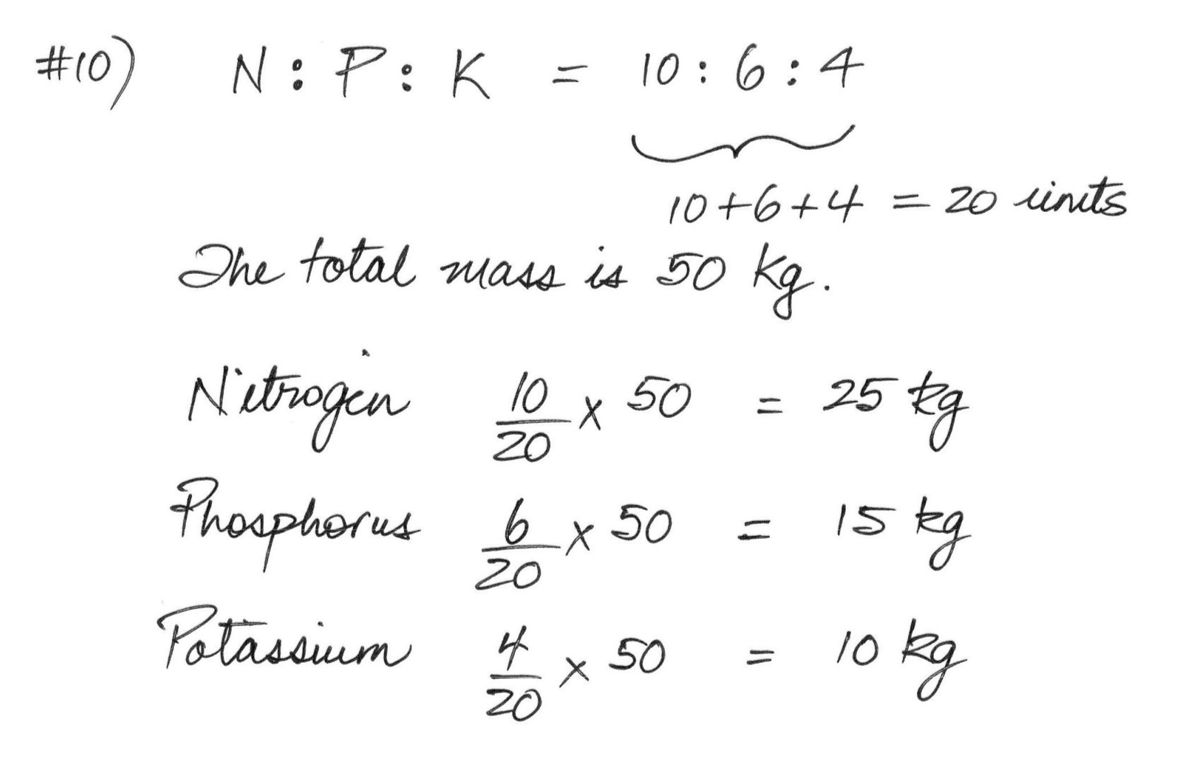 #10) N : P : K = 10 : 6 : 4
10 + 6 + 4 = 20 units
The total mass is 50 kg.
Nitrogen 10/20 × 50 = 25 kg
Phosphorus 6/20 × 50 = 15 kg
Potassium 4/20 × 50 = 10 kg